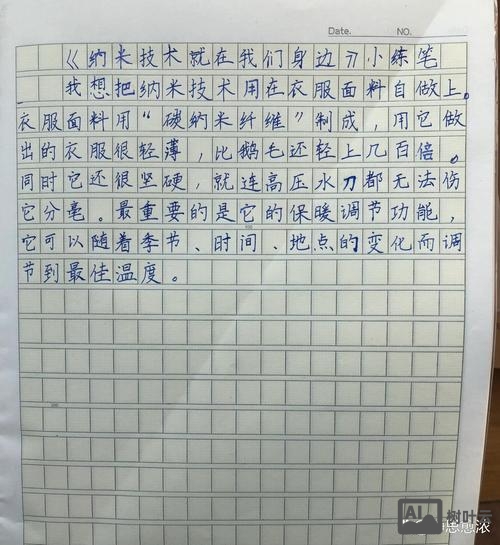 Date.
NO.
《纳米技术就在我们身边》小练笔
我想把纳米技术用在衣服面料自做上。
衣服面料用“碳纳米纤维”制成，用它做
出的衣服很轻薄，比鹅毛还轻上几百倍。
同时它还很坚硬，就连高压水刀都无法伤
它分毫。最重要的是它的保暖调节功能，
它可以随着季节、时间、地点的变化而调
节到最佳温度。
AI 树叶云